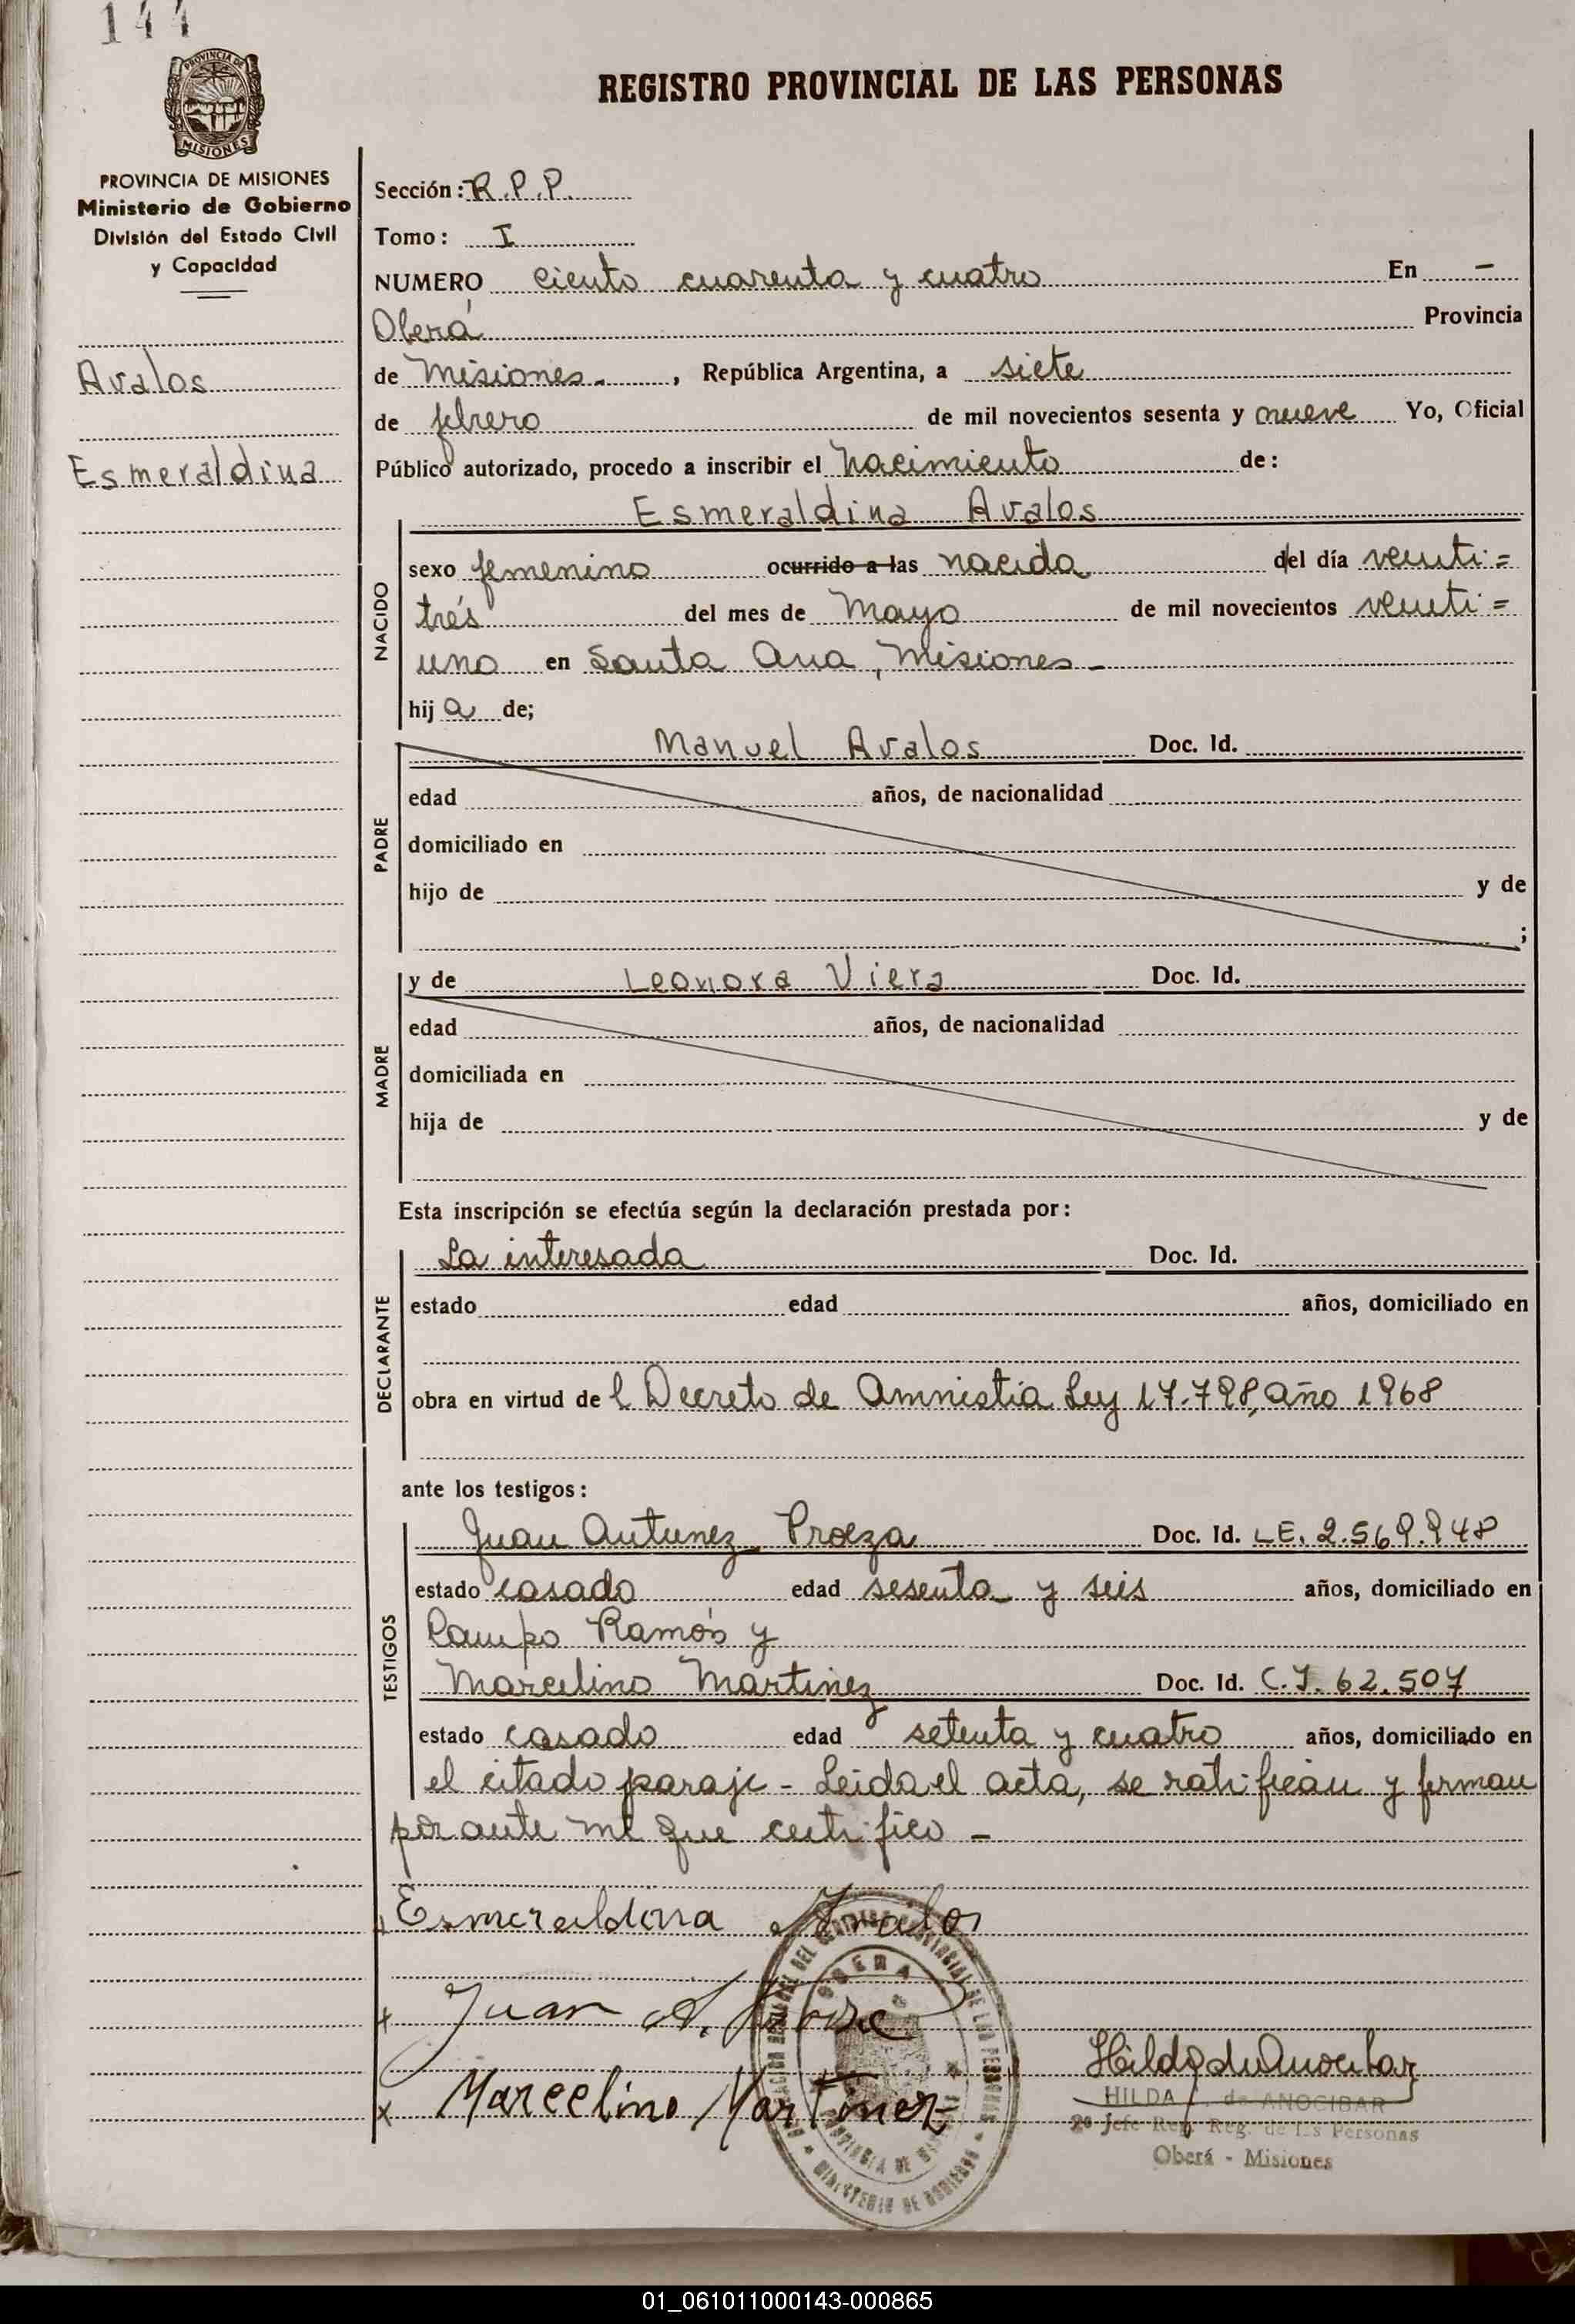 144
PROVINCIA DE
MISIONES
REGISTRO PROVINCIAL DE LAS PERSONAS
PROVINCIA DE MISIONES
Ministerio de Gobierno
División del Estado Civil
y Capacidad
Avalos
Esmeraldina
Sección: R.P.P.
Tomo: I
NUMERO ciento cuarenta y cuatro En -
Oberá Provincia
de Misiones. , República Argentina, a siete
de febrero de mil novecientos sesenta y nueve Yo, Oficial
Público autorizado, procedo a inscribir el nacimiento de:
Esmeraldina Avalos
NACIDO
sexo femenino ocurrido a las nacida del día veinti=
trés del mes de Mayo de mil novecientos veinti=
uno en Santa Ana, Misiones -
hija de;
PADRE
Manuel Avalos Doc. Id.
edad años, de nacionalidad
domiciliado en
hijo de y de
;
MADRE
y de Leonora Viera Doc. Id.
edad años, de nacionalidad
domiciliada en
hija de y de
Esta inscripción se efectúa según la declaración prestada por:
DECLARANTE
La interesada Doc. Id.
estado edad años, domiciliado en
obra en virtud del Decreto de Amnistia Ley 17.798, año 1968
ante los testigos:
TESTIGOS
Juan Antunez Proeza Doc. Id. L.E. 2.569.948
estado casado edad sesenta y seis años, domiciliado en
Campo Ramón y
Marcelino Martinez Doc. Id. C.I. 62.507
estado casado edad setenta y cuatro años, domiciliado en
el citado paraje - Leida el acta, se ratifican y firman
por ante mi que certifico -
Esmeraldina Avalos
x Juan A.
x Marcelino Martinez
OBERA
MINISTERIO DE GOBIERNO
Hilda de Anocibar
HILDA de ANOCIBAR
2º Jefe Reg. Reg. de las Personas
Oberá - Misiones
01_061011000143-000865